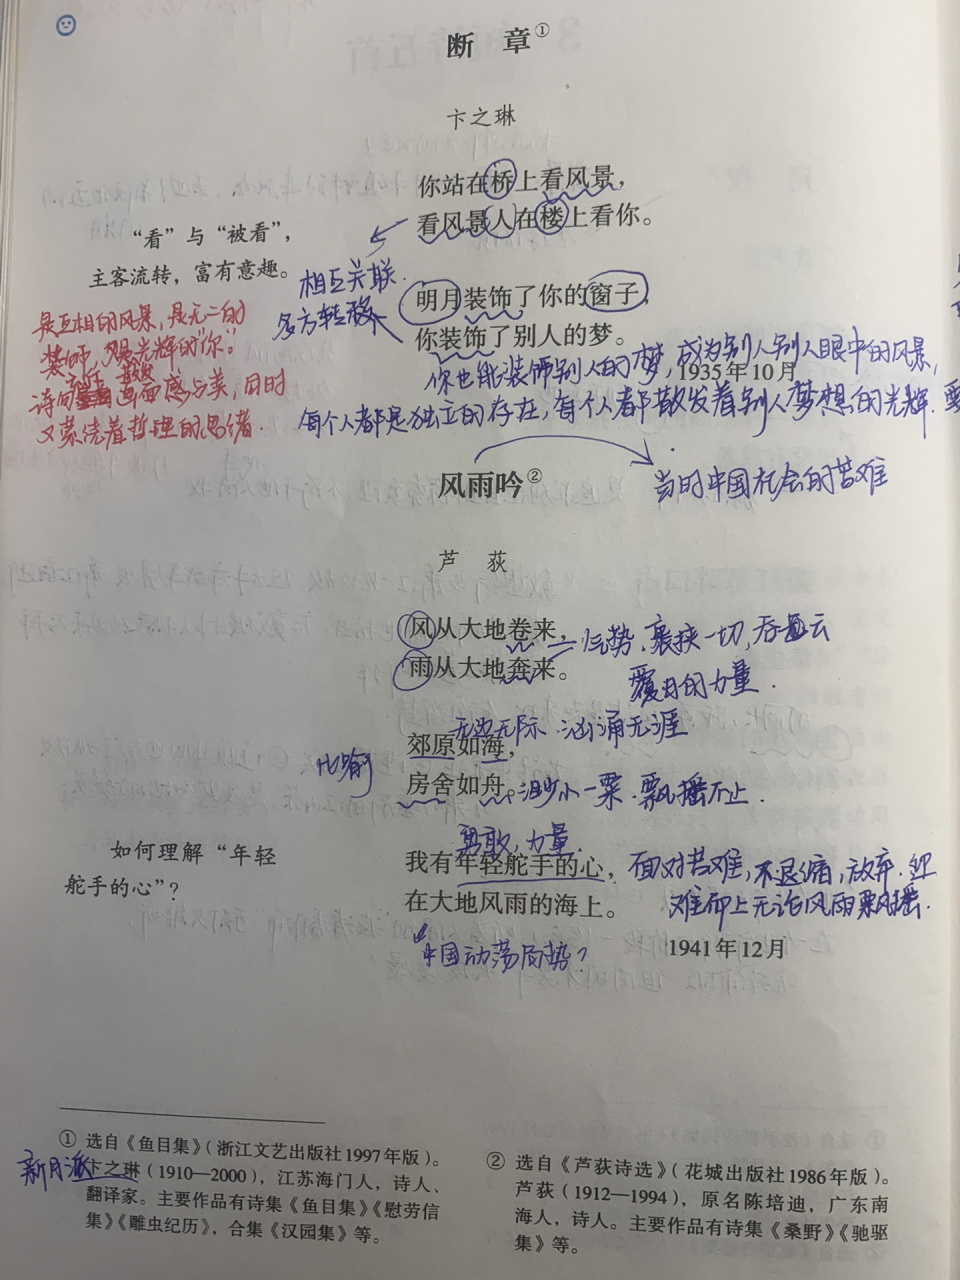 断 章①
卞之琳
你站在桥上看风景，
看风景人在楼上看你。
“看”与“被看”，
主客流转，富有意趣。
相互关联.
多方转移
明月装饰了你的窗子，
你装饰了别人的梦。
是互相的风景，是无二的
装饰，是光辉的“你”。
画面感与美，同时
又萦绕着哲理的思绪.
你也能装饰别人的梦，成为别人别人眼中的风景，
1935年10月
每个人都是独立的存在，每个人都散发着别人梦想的光辉.
风雨吟②
当时中国社会的苦难
芦 荻
风从大地卷来，
雨从大地奔来。
气势.裹挟一切，吞云
覆月的力量.
无边无际.汹涌无涯
郊原如海，
房舍如舟。
比喻
渺小一粟.飘摇不止.
勇敢，力量.
我有年轻舵手的心，
在大地风雨的海上。
面对苦难，不退缩，放弃.迎
难而上无论风雨飘摇.
如何理解“年轻
舵手的心”？
中国动荡局势？
1941年12月
① 选自《鱼目集》（浙江文艺出版社1997年版）。
卞之琳（1910—2000），江苏海门人，诗人、
翻译家。主要作品有诗集《鱼目集》《慰劳信
集》《雕虫纪历》，合集《汉园集》等。
新月派
② 选自《芦荻诗选》（花城出版社1986年版）。
芦荻（1912—1994），原名陈培迪，广东南
海人，诗人。主要作品有诗集《桑野》《驰驱
集》等。